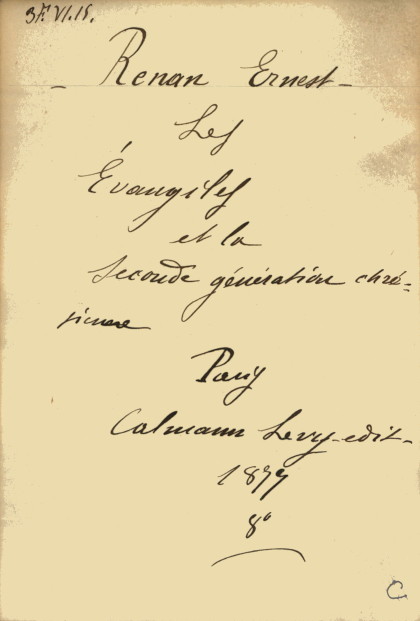 37.VI.15.
- Renan Ernest -
Les
Évangiles
et la
seconde génération chré-
tienne
Paris
Calmann Levy-edit-
1877
8°
C